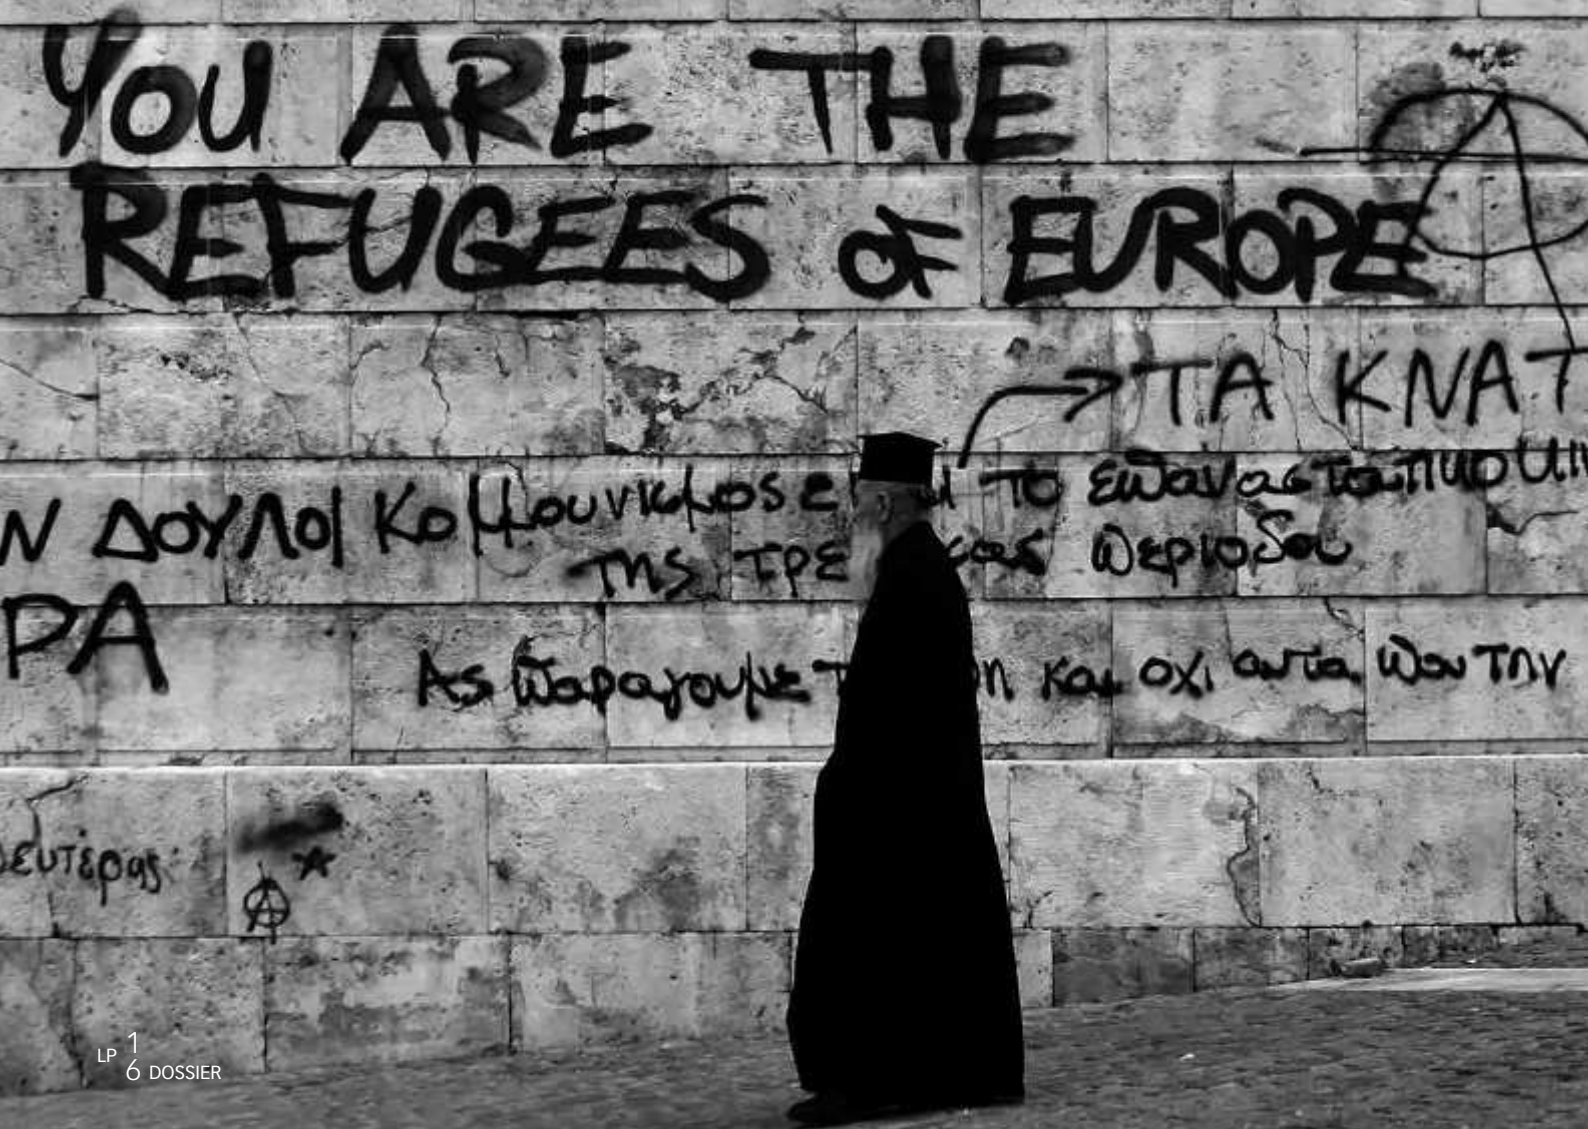 YOU ARE THE
REFUGEES OF EUROPE
ΤΑ ΚΝΑΤ
Ν ΔΟΥΛΟΙ Κομμουνισμος ε ι το επαναστατικο
της τρε σας περιοδου
ΡΑ
Ας παραγουμε τ η και οχι αυτα που την
ευτέρας
A
LP 1
6 DOSSIER